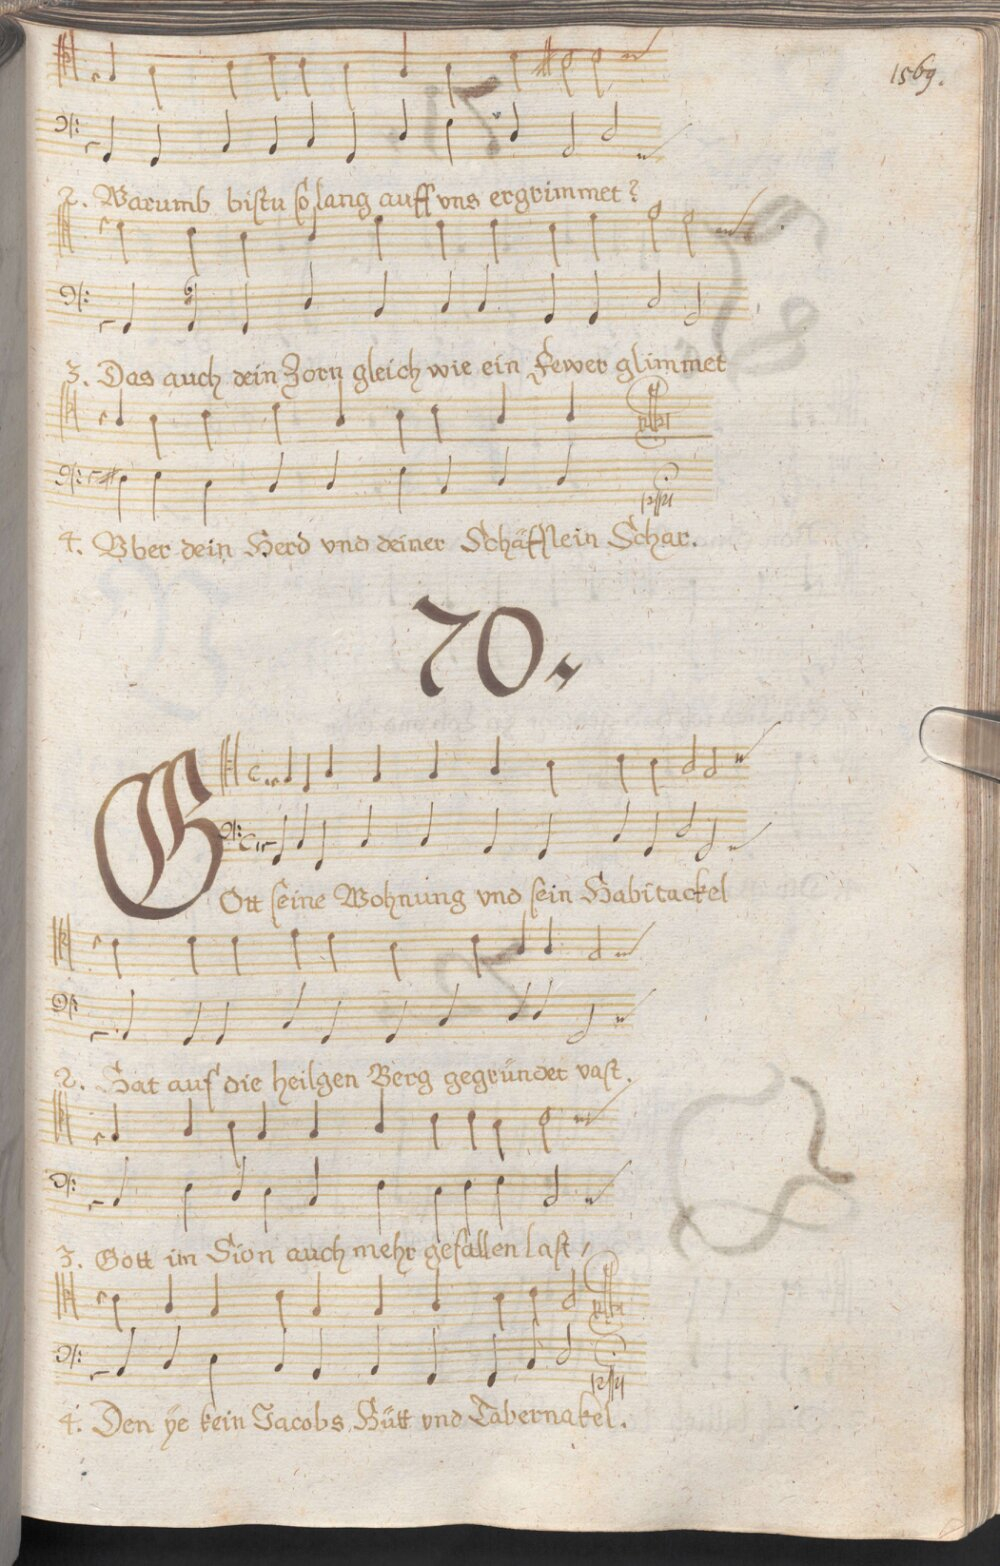 1569.
2. Warumb bistu so lang auff vns ergrimmet?
3. Das auch dein Zorn gleich wie ein Fewer glimmet
4. Vber dein Herd vnd deiner Schäfflein Schar.
70.
GOtt seine Wohnung vnd sein Habitackel
2. Hat auf die heilgen Berg gegründet vast.
3. Gott im Sion auch mehr gefallen last,
4. Den ÿe kein Jacobs Hütt vnd Tabernakel.